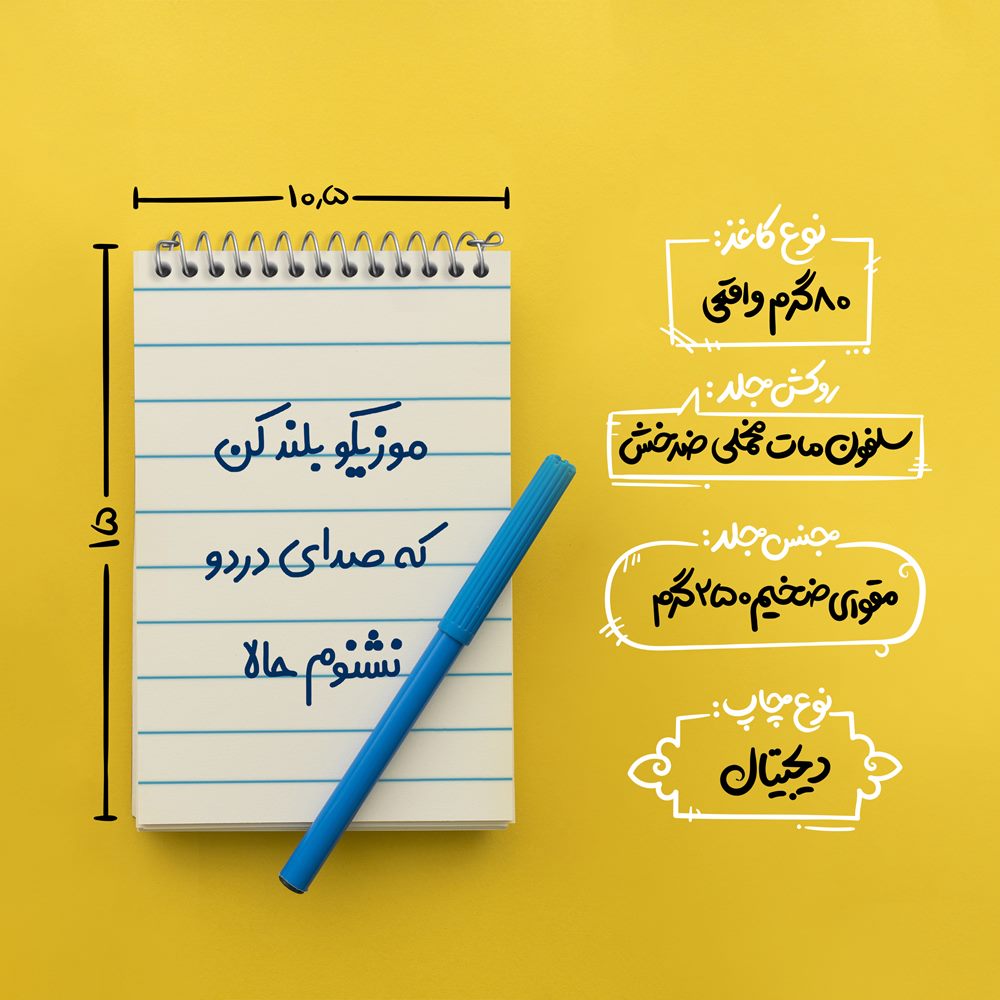 ۱۰٫۵
۱۵
موزیکو بلند کن
که صدای دردو
نشنوم حالا
نوع کاغذ:
۸۰ گرم واقعی
روکش جلد:
سلفون مات مخملی ضدخش
جنس جلد:
مقوای ضخیم ۲۵۰ گرم
نوع چاپ:
دیجیتال